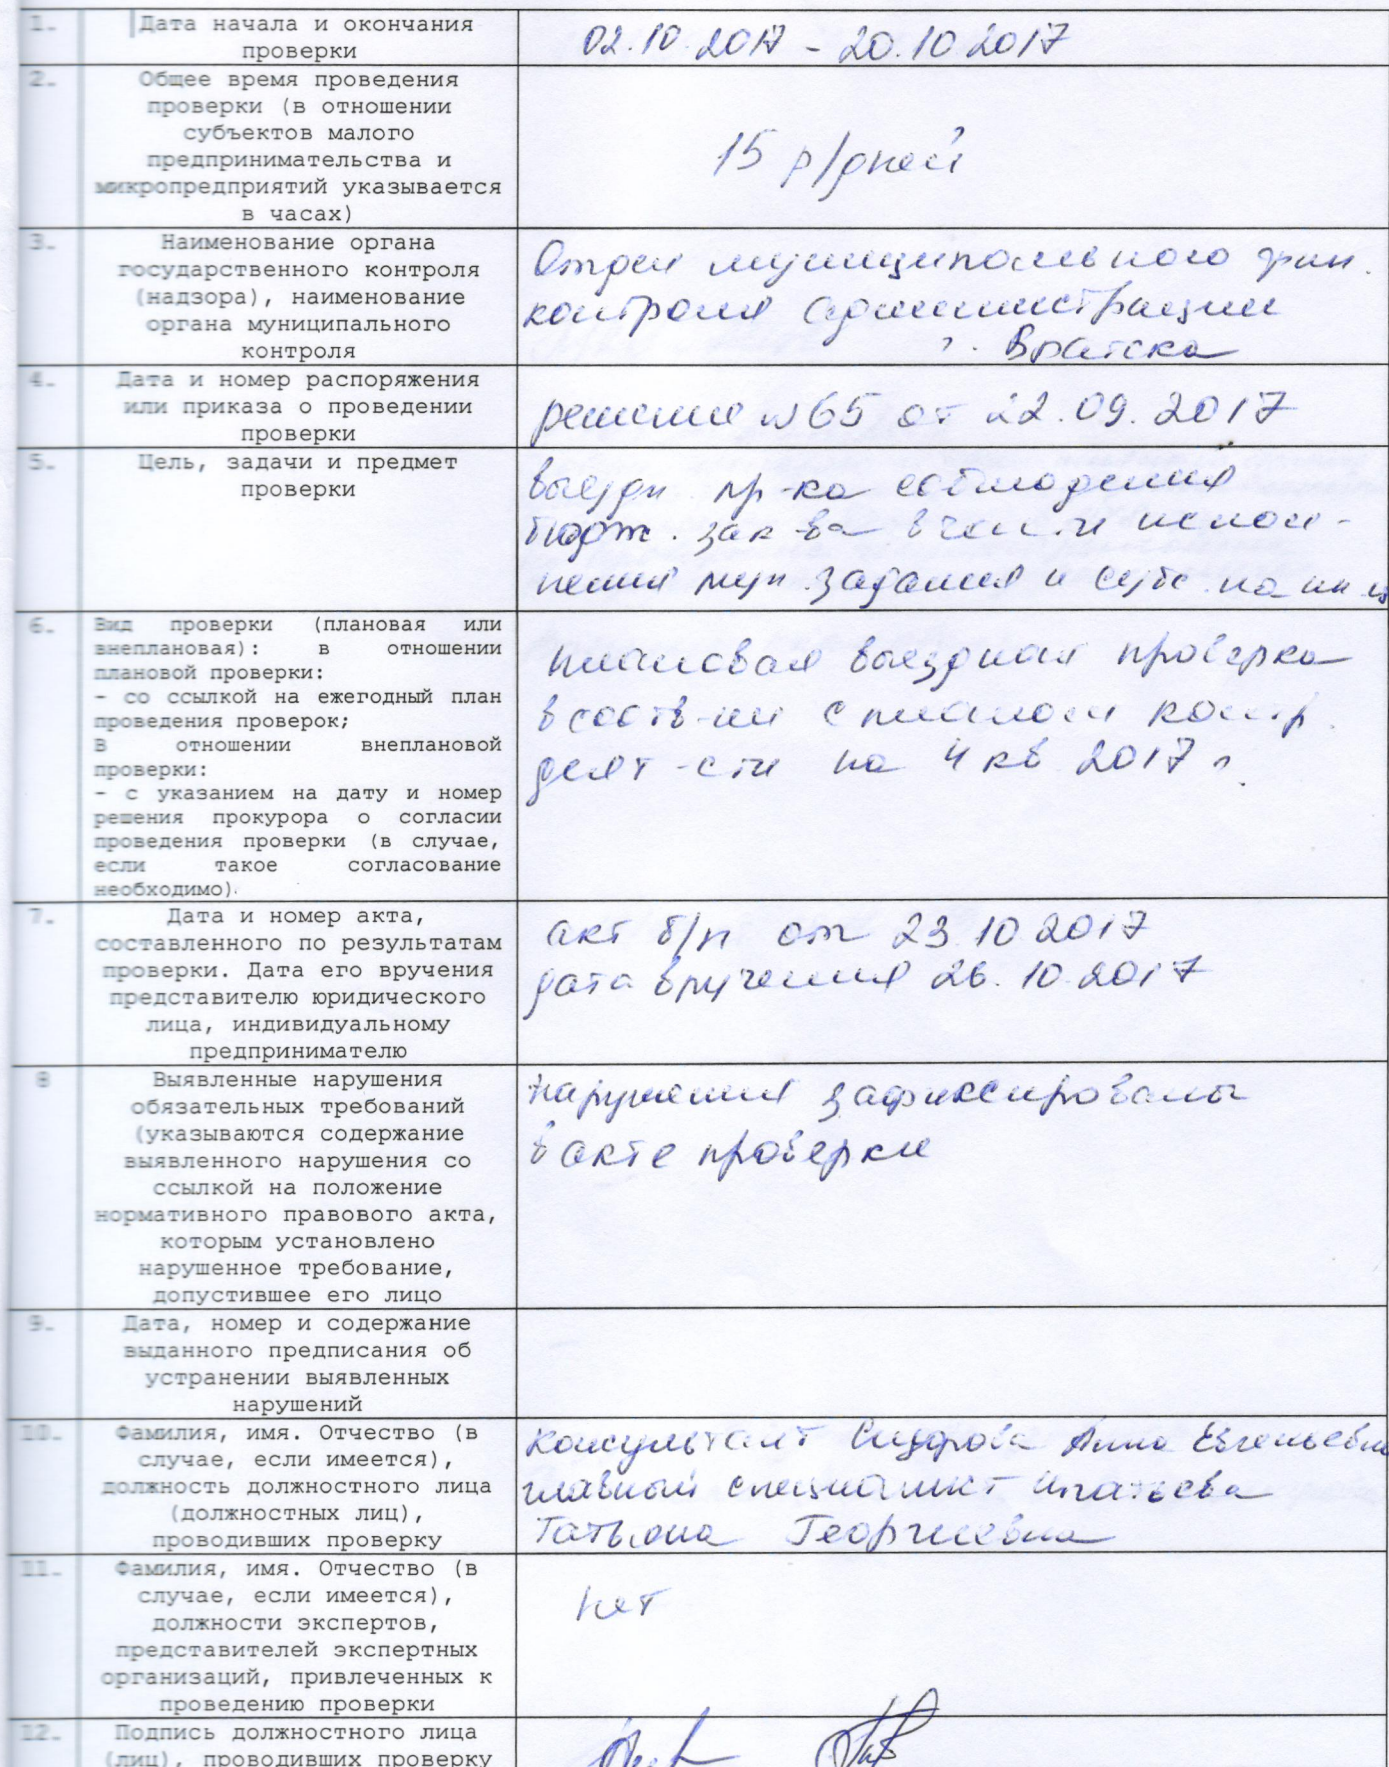 1. Дата начала и окончания
проверки
02.10.2017 - 20.10 2017
2. Общее время проведения
проверки (в отношении
субъектов малого
предпринимательства и
микропредприятий указывается
в часах)
15 р/дней
3. Наименование органа
государственного контроля
(надзора), наименование
органа муниципального
контроля
Отдел муниципального фин.
контроля администрации
г. Братска
4. Дата и номер распоряжения
или приказа о проведении
проверки
решение №65 от 22.09.2017
5. Цель, задачи и предмет
проверки
выездн. пр-ка соблюдения
бюдж. зак-ва в части испол-
нения мун. задания и субс. на ин. ц
6. Вид проверки (плановая или
внеплановая): в отношении
плановой проверки:
- со ссылкой на ежегодный план
проведения проверок;
В отношении внеплановой
проверки:
- с указанием на дату и номер
решения прокурора о согласии
проведения проверки (в случае,
если такое согласование
необходимо).
плановая выездная проверка
в соотв-ии с планом контр.
деят-сти на 4 кв 2017 г.
7. Дата и номер акта,
составленного по результатам
проверки. Дата его вручения
представителю юридического
лица, индивидуальному
предпринимателю
акт б/н от 23.10 2017
дата вручения 26.10.2017
8 Выявленные нарушения
обязательных требований
(указываются содержание
выявленного нарушения со
ссылкой на положение
нормативного правового акта,
которым установлено
нарушенное требование,
допустившее его лицо
нарушения зафиксированы
в акте проверки
9. Дата, номер и содержание
выданного предписания об
устранении выявленных
нарушений
10. Фамилия, имя. Отчество (в
случае, если имеется),
должность должностного лица
(должностных лиц),
проводивших проверку
консультант Сидорова Анна Евгеньевна
главный специалист Игнатьева
Татьяна Георгиевна
11. Фамилия, имя. Отчество (в
случае, если имеется),
должности экспертов,
представителей экспертных
организаций, привлеченных к
проведению проверки
нет
12. Подпись должностного лица
(лиц), проводивших проверку